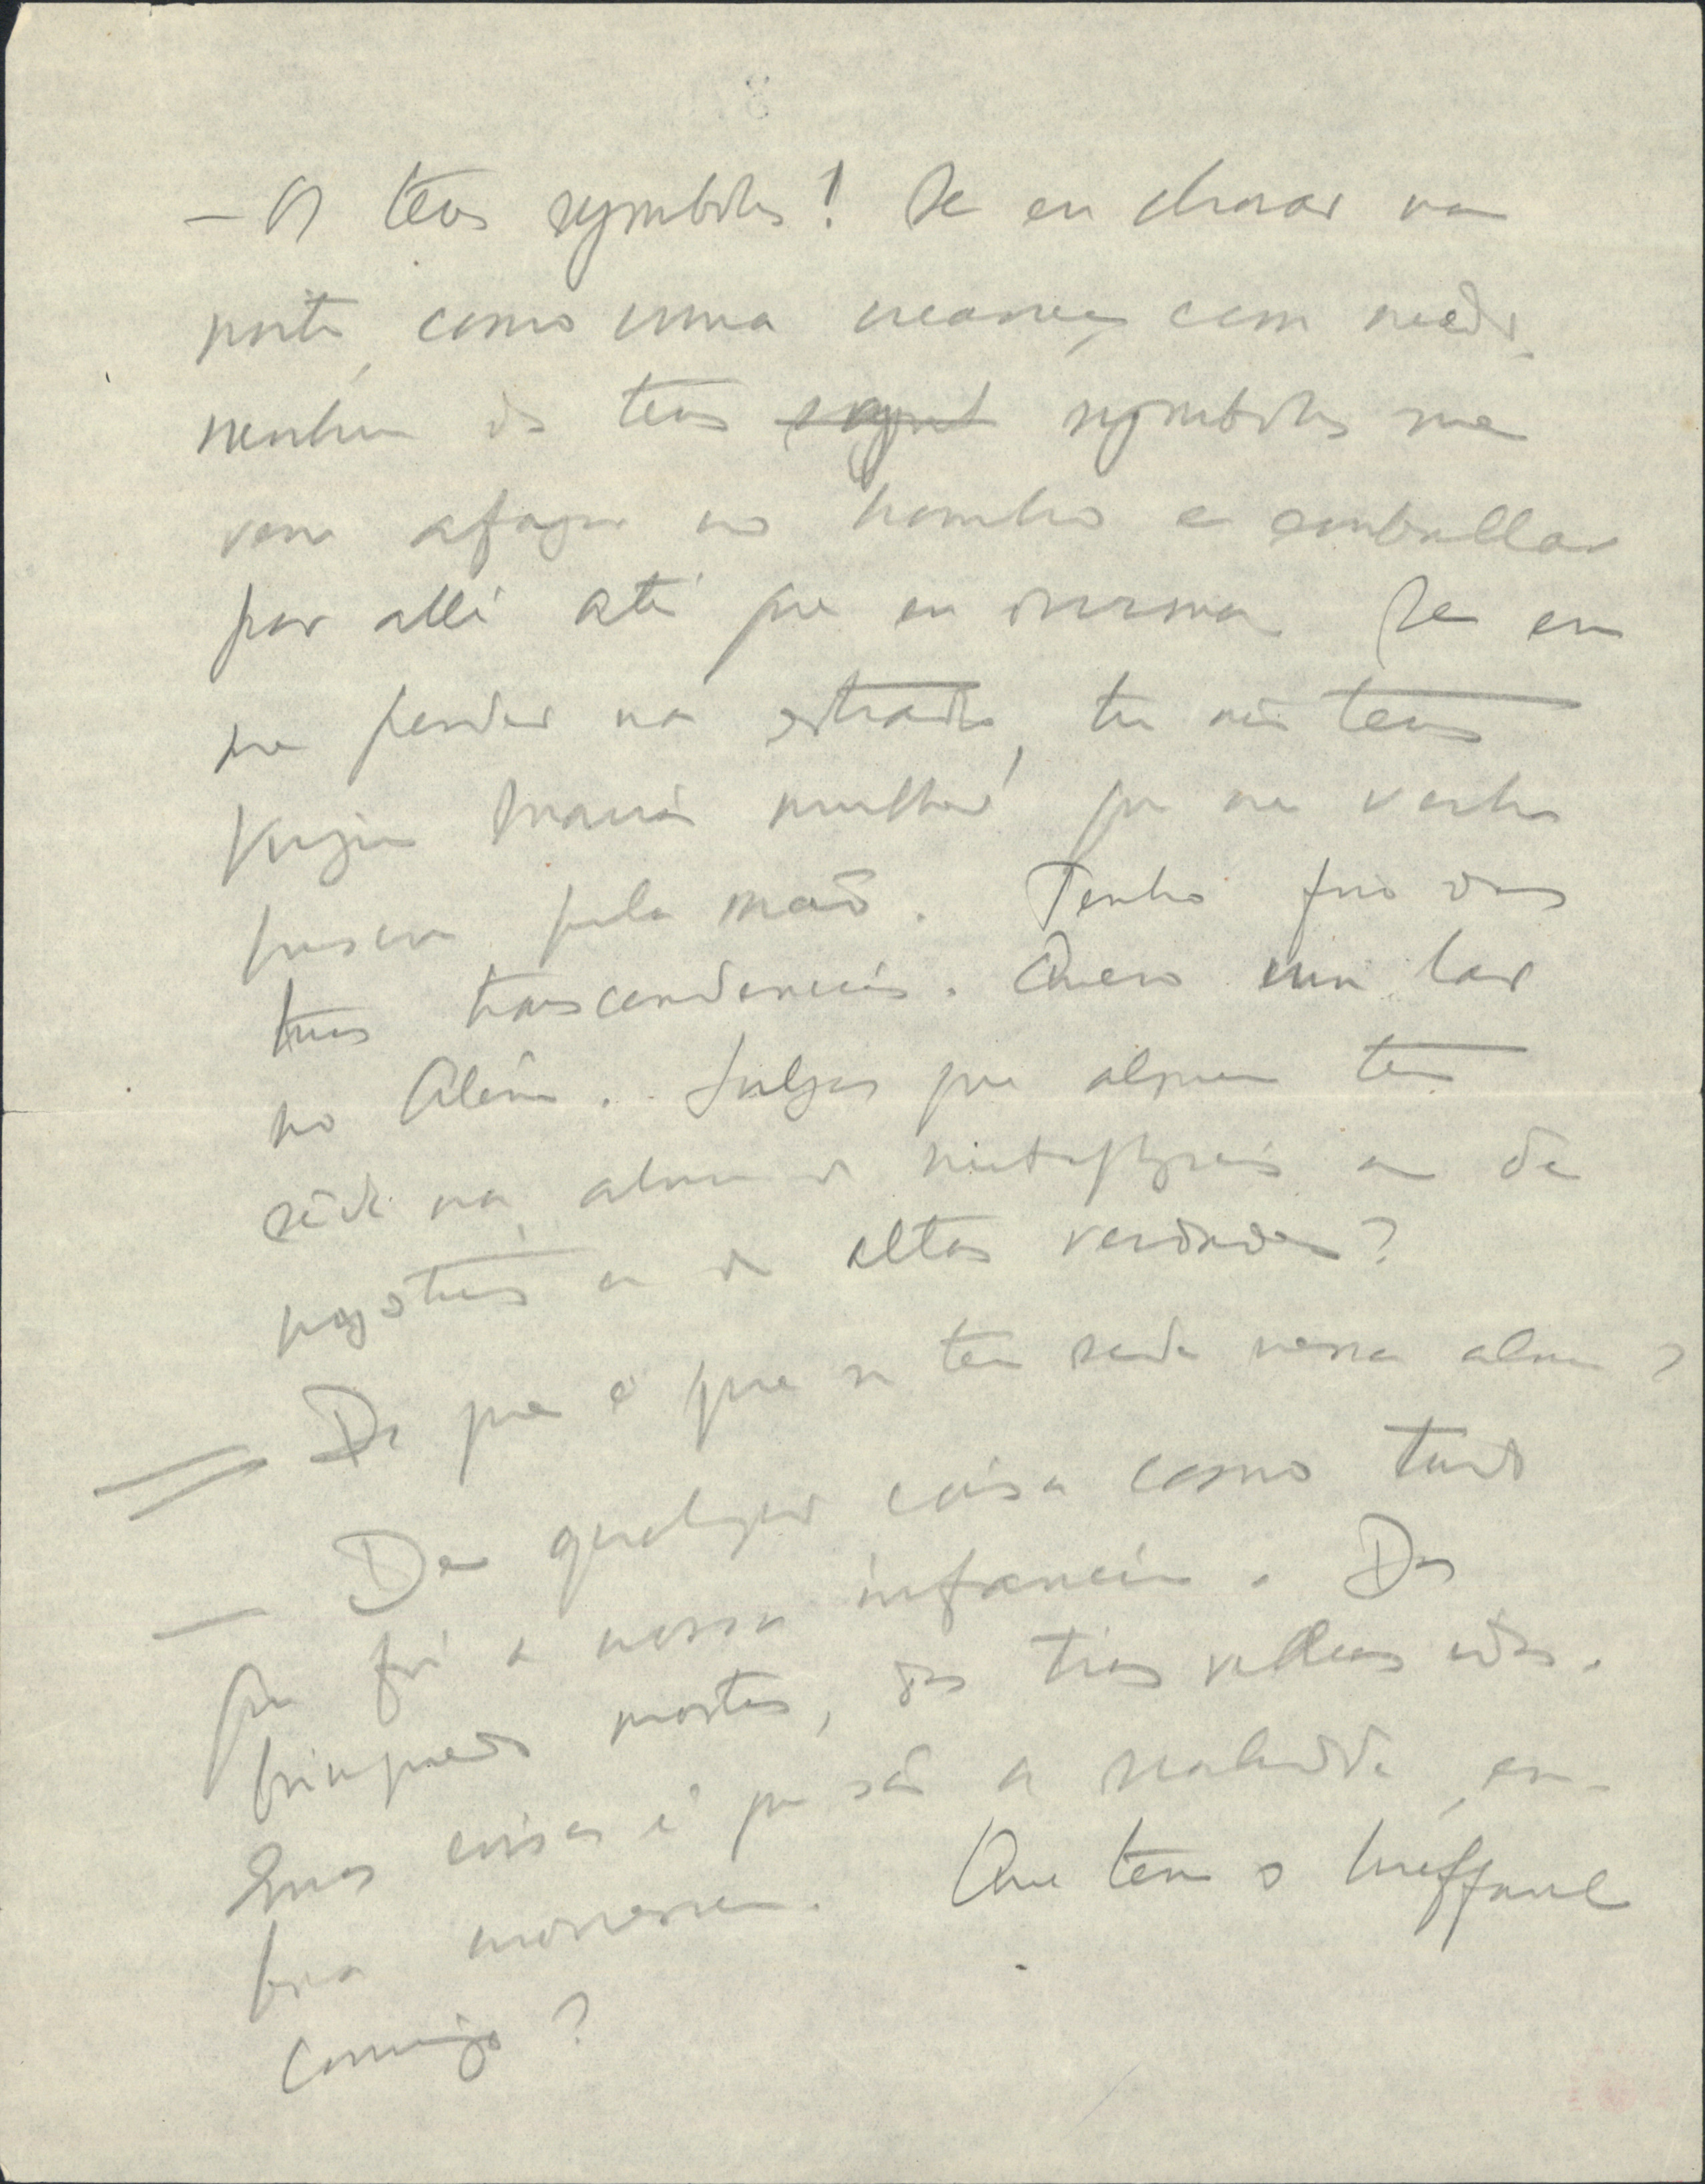 — Os teus symbolos! Se eu chorar na
noite, como uma creança com medo,
nenhum dos teus symbolos me
vem afagar no hombro e emballar
por alli até que eu durma. Se eu
me perder na estrada, tu não tens
Virgem Maria melhor que me venha
buscar pela mão. Tenho frio das
tuas transcendencias. Quero um lar
no Além. Julgas que alguem tem
sêde na alma de metaphysicas ou de
mysterios ou de altas verdades?
— De que é que se tem sede nessa alma?
— De qualquer coisa como tudo
que foi a nossa infancia. Dos
brinquedos mortos, das tias velhas idas.
Essas coisas é que são a realidade, em-
bora morressem. Que tem o Ineffavel
commigo?